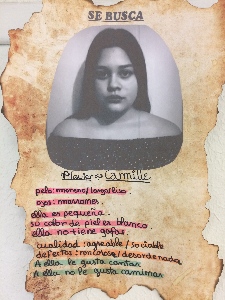 SE BUSCA
Camille
pelo: moreno/largo/liso.
ojos: marrones.
ella es pequeña.
su color de piel es blanco.
ella no tiene gafas.
cualidad: agreable/sociable
defectos: /desordenada
A ella le gusta cantar
A ella no le gusta caminar